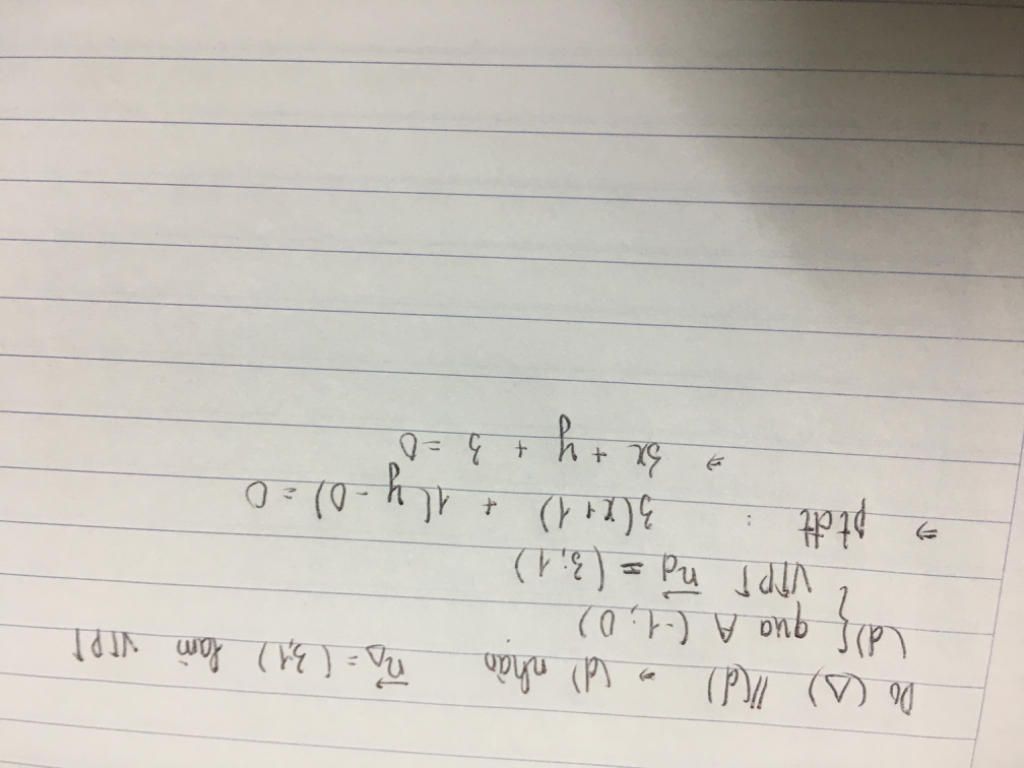 Do (Δ) // (d) ⇒ (d) nhận n⃗Δ = (3;1) làm VTPT
(d) { qua A (-1; 0)
VTPT n⃗d = (3;1)
⇒ ptđt : 3(x+1) + 1(y-0) = 0
⇒ 3x + y + 3 = 0